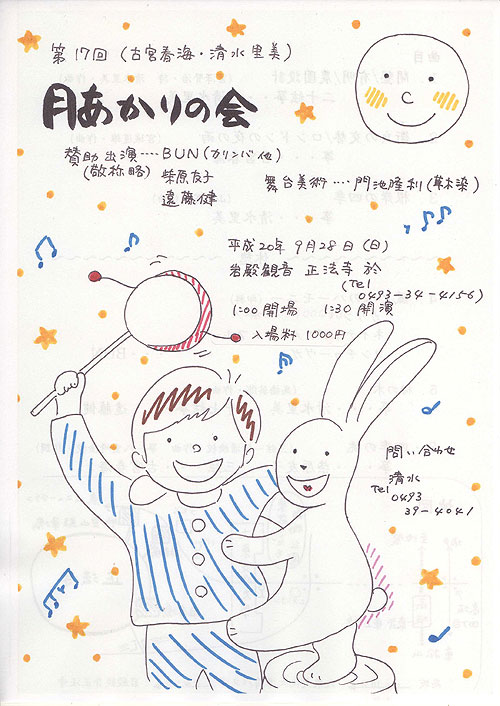 第17回 (古宮春海・清水里美)
月あかりの会
賛助出演‥‥BUN(カリンバ他)
(敬称略) 柴原友子
遠藤健
舞台美術‥‥門池隆利(草木染)
平成20年 9月28日(日)
岩殿観音 正法寺 於
(Tel
0493-34-4156)
1:00 開場 1:30 開演
入場料 1000円
問い合わせ
清水
Tel
0493
39-4041